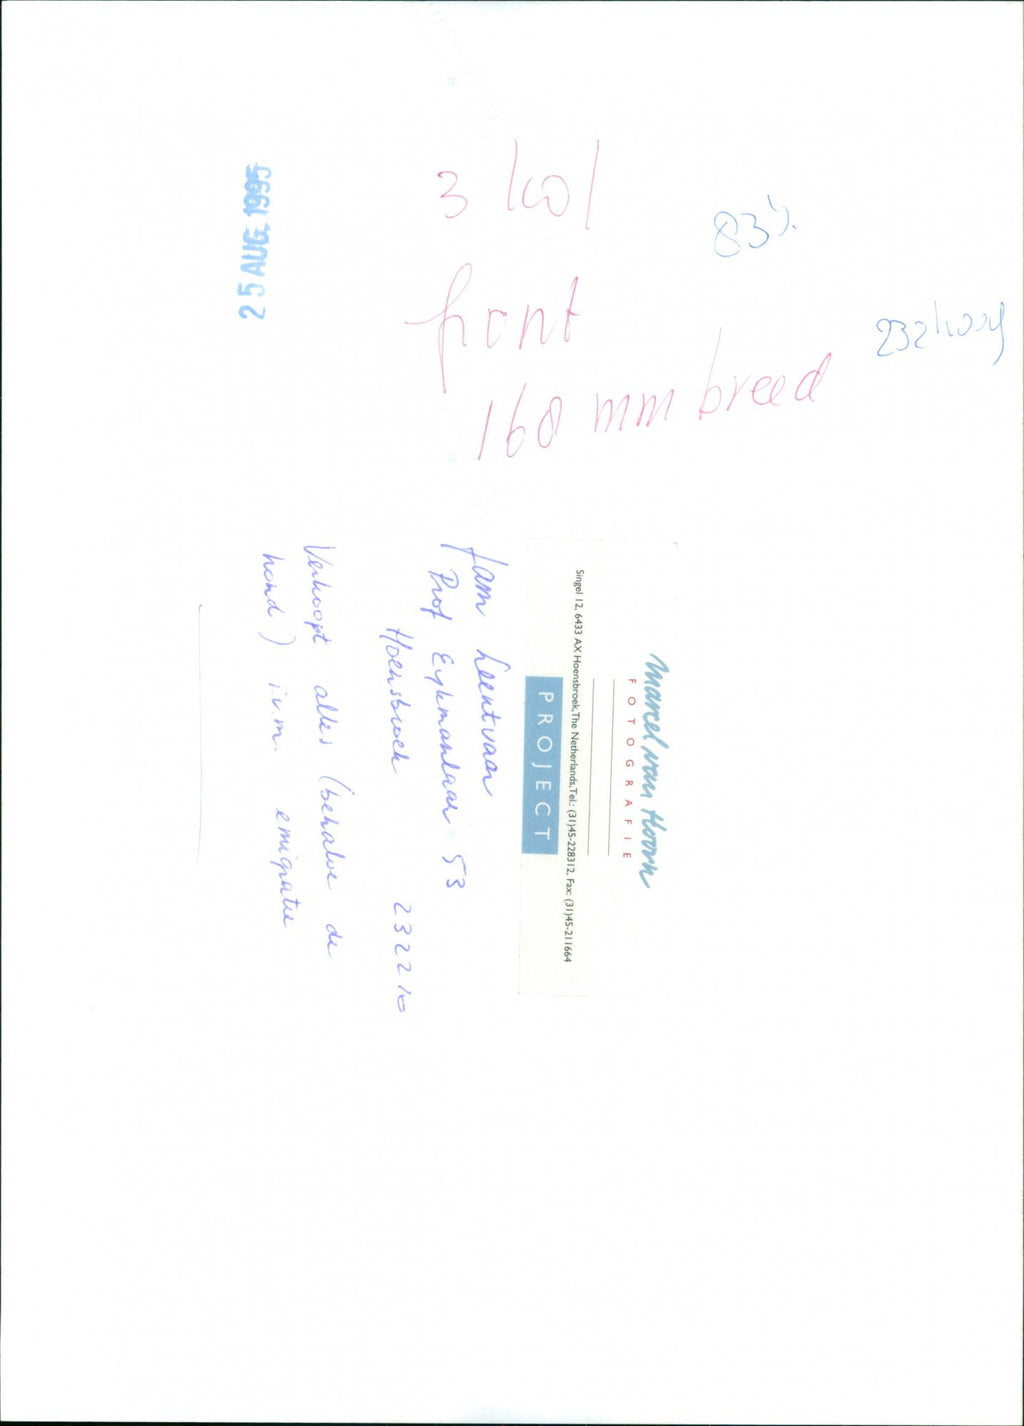 25 AUG. 1995
3 kol
front
160 mm breed
83%
232 hoog
Marcel van Hoorn
FOTOGRAFIE
Singel 12, 6433 AX Hoensbroek, The Netherlands, Tel.: (31)45-228312, Fax: (31)45-211664
PROJECT
fam Leentvaar
Prof Eykmanlaan 53
Hoensbroek 232210
Verkoopt alles (behalve de
hond) i.v.m. emigratie